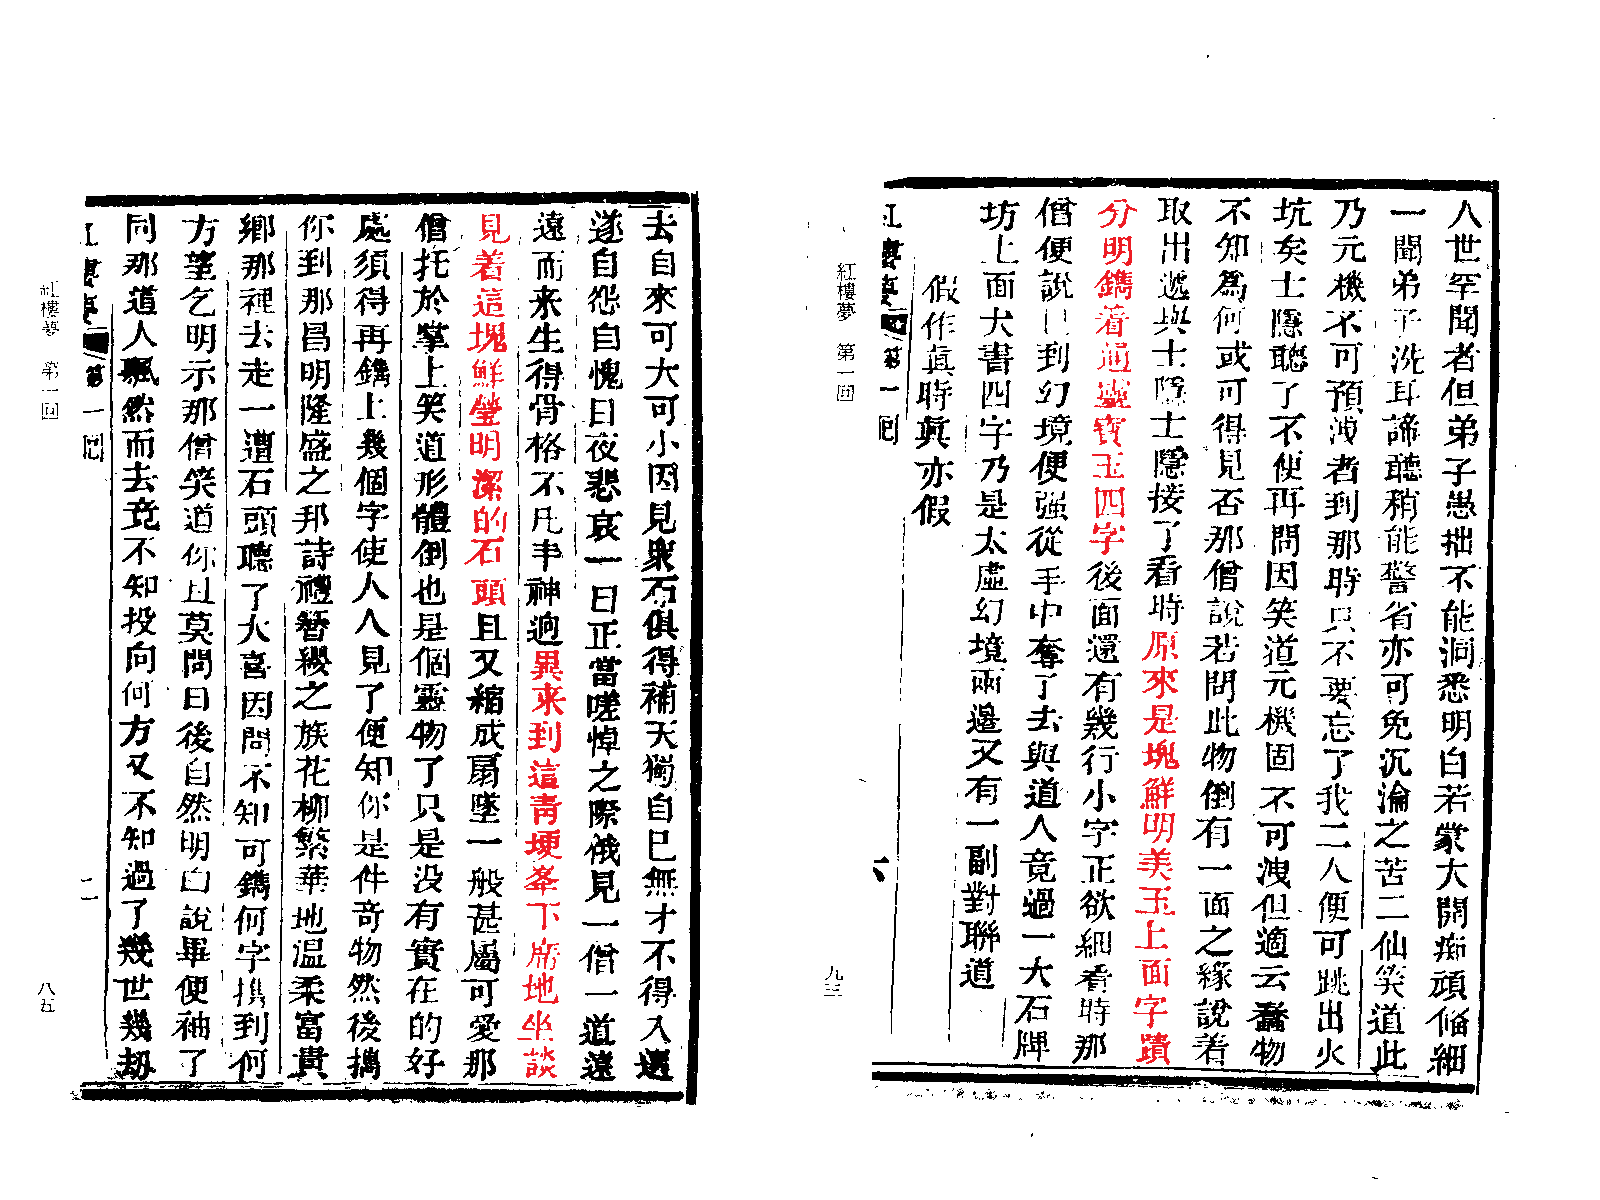 人世罕聞者但弟子愚拙不能洞悉明白若蒙大開痴頑俻細
一聞弟子洗耳諦聽稍能警省亦可免沉淪之苦二仙笑道此
乃元機不可預洩者到那時只不要忘了我二人便可跳出火
坑矣士隱聽了不便再問因笑道元機固不可洩但適云蠢物
不知為何或可得見否那僧說若問此物倒有一面之緣說着
取出遞與士隱士隱接了看時原來是塊鮮明美玉上面字蹟
分明鐫着通靈寶玉四字後面還有幾行小字正欲細看時那
僧便說已到幻境便强從手中奪了去與道人竟過一大石牌
坊上面大書四字乃是太虛幻境兩邊又有一副對聯道
假作眞時眞亦假
紅樓夢 第一回 六
紅樓夢 第一回 九三
去自來可大可小因見衆石俱得補天獨自已無才不得入選
遂自怨自愧日夜悲哀一日正當嗟悼之際俄見一僧一道遠
遠而来生得骨格不凡丰神逈異来到這青埂峯下席地坐談
見着這塊鮮瑩明潔的石頭且又縮成扇墜一般甚屬可愛那
僧托於掌上笑道形體倒也是個靈物了只是没有實在的好
處須得再鐫上幾個字使人人見了便知你是件奇物然後攜
你到那昌明隆盛之邦詩禮簪纓之族花柳繁華地温柔富貴
鄉那裡去走一遭石頭聽了大喜因問不知可鐫何字携到何
方望乞明示那僧笑道你且莫問日後自然明白說畢便袖了
同那道人飄然而去竟不知投向何方又不知過了幾世幾劫
紅樓夢 第一回 二
紅樓夢 第一回 八五